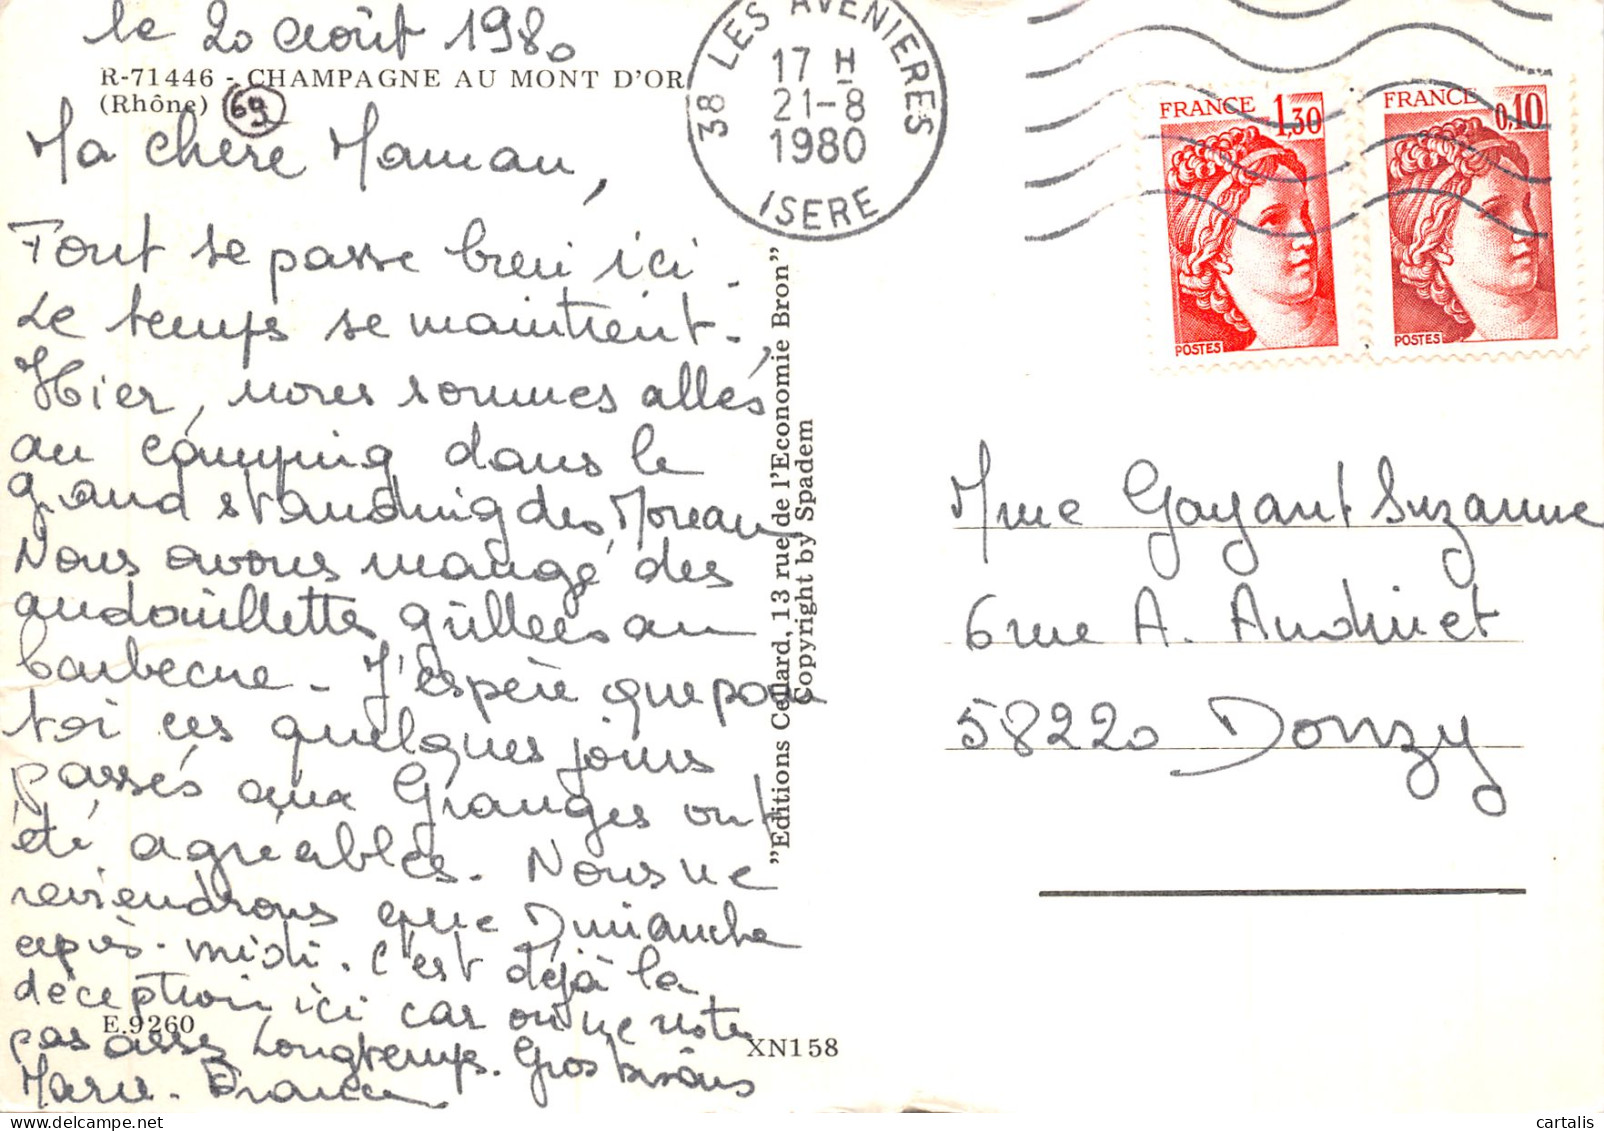 le 20 Août 1980
R-71446 - CHAMPAGNE AU MONT D'OR
(Rhône) 69
Ma chère Maman,
Tout se passe bien ici.
Le temps se maintient.
Hier, nous sommes allés
au camping dans le
grand standing des Moreau
Nous avons mangé des
andouillettes grillées au
barbecue. J'espère que pour
toi ces quelques jours
passés aux Granges ont
été agréables. Nous ne
reviendrons que Dimanche
après-midi. C'est déjà la
déception ici car on ne reste
pas assez longtemps. Gros bisous
Marie-France
E.9260
XN158
"Editions Cellard, 13 rue de l'Economie Bron"
Copyright by Spadem
38 LES AVENIERES
17 H
21-8
1980
ISERE
FRANCE 1,30
POSTES
FRANCE 0,10
POSTES
Mme Goyant Suzanne
6 rue A. Audinet
58220 Donzy
cartalis